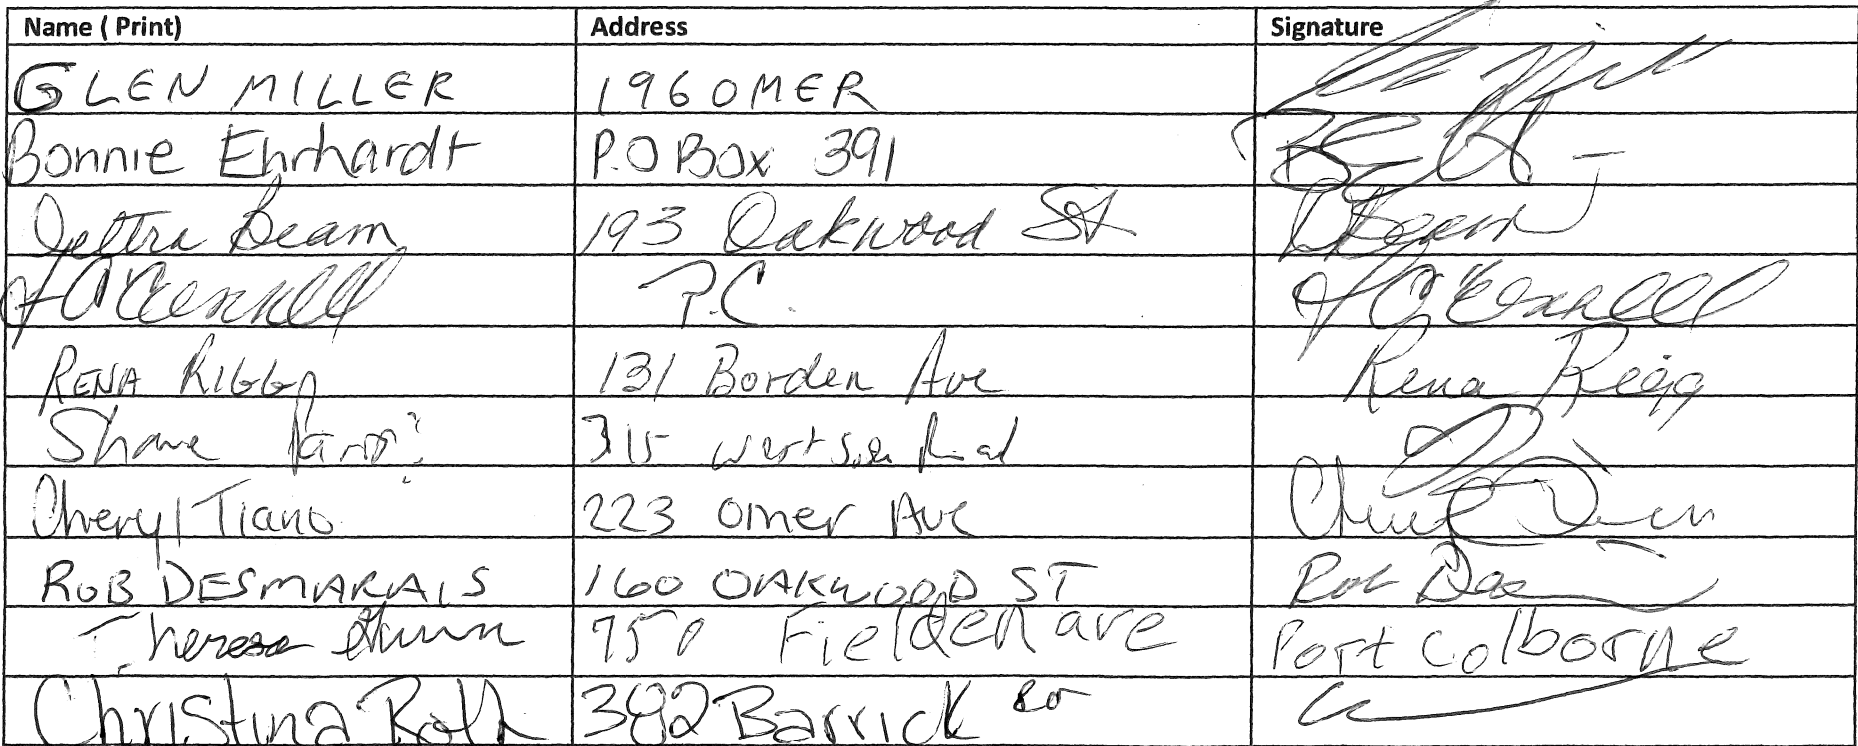 Name ( Print) Address Signature
GLEN MILLER 196 OMER
Bonnie Ehrhardt P.O Box 391
Beam 193 Oakwood St Beam
J O'Connell P.C. J O'Connell
RENA RIGG 131 Borden Ave Rena Rigg
Shane 315 West Side Road
Cheryl Tiano 223 Omer Ave
ROB DESMARAIS 160 OAKWOOD ST Rob
Theresa 750 Fielden ave Port Colborne
Christina Roth 382 Barrick RD